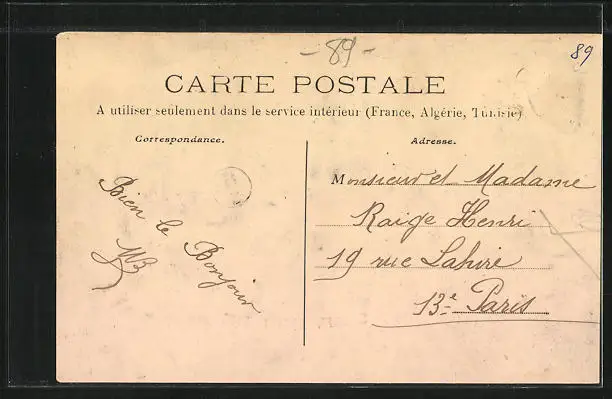 - 89 -
89
CARTE POSTALE
A utiliser seulement dans le service intérieur (France, Algérie, Tunisie)
Correspondance.
Bien le Bonjour
Adresse.
Monsieur et Madame
Raige Henri
19 rue Lahire
13e Paris